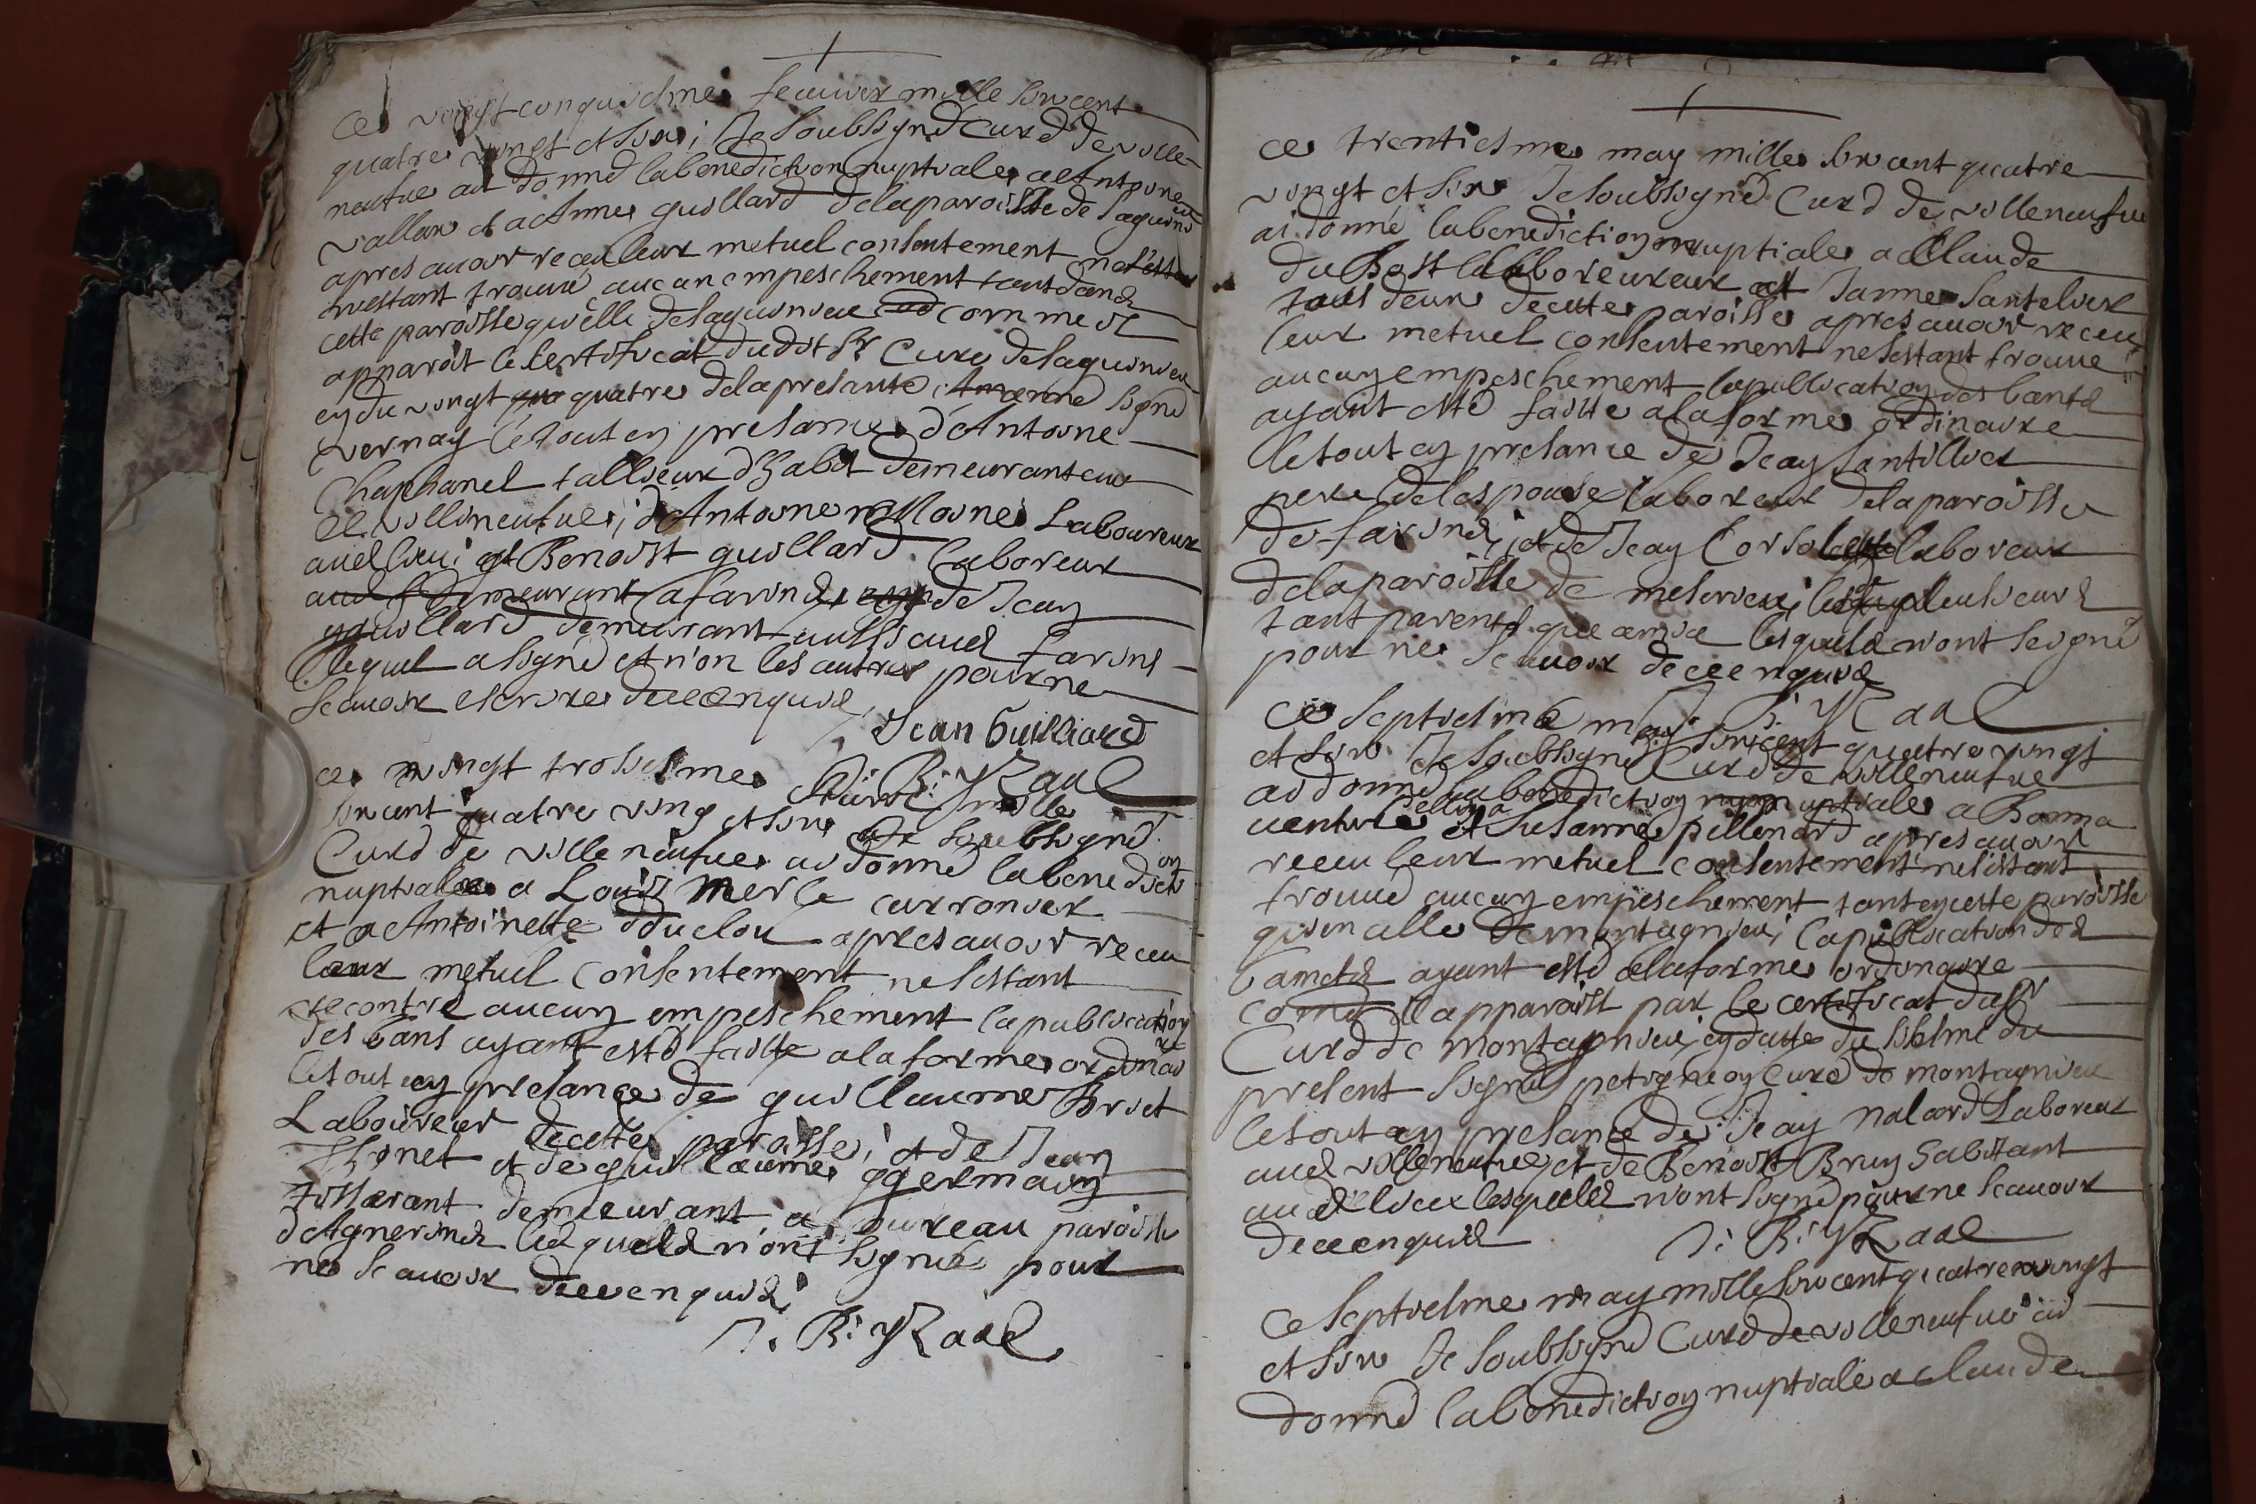 ce vingt cinquiesme feauvier mille six cent
quatre vingt et six; Je soubsigné Curé de ville
neufue ai donné la benediction nuptiale a Antoine
vallan et a Anne guillard de la paroisse de
apres auoir receu leur metuel consentement
nestant trouué aucun empeschement tant dans
cette paroisse quelle de saguinieu comme il
apparoit le certificat dudit Sr Curé de saguinieu
en du vingt quatre de la presante signé
vernay le tout en presance d'Antoine
Chaphanel tallieur d'habit demeurant
villeneufue; d'Antoine Moine Laboureux
aud lieu; et Benoist guillard laboreur
demeurant a farins, de Jean
guillard demeurant aussi aud farins
lequel a signé et n'on les autres pour ne
scauoir escrire de ce enquis
Jean Guilliard
ce vingt troisiesme feurier mille
J: B: Raal
six cent quatre ving et six Je soubsigné
Curé de villeneufue ai donné la benediction
nuptiale a Louis Merle carronier
et a Antoinette duclou apres auoir receu
leur metuel consentement ne sestant
recontré aucun empeschement la publication
des bans ayant esté faitte a la forme ordinaire
le tout en presance de guillaume Briet
Laboureur de cette paroisse; et de Jean
Thonet et de guillaume germain
tisserant demeurant a bureau paroisse
d'Agnerins lesquels n'ont signé pour
ne scauoir de ce enquis;
J: B: Raal
ce trentiesme may mille six cent quatre
vingt et six Je soubsigné Curé de villeneufue
ai donné la benediction nuptiale a Claude
du Bost laboreureur et Janne santelier
tous deux de cette paroisse apres auoir receu
leur metuel consentement ne sestant trouué
aucun empeschement la publication des bants
ayant esté faitte a la forme ordinaire
le tout en presance de Jean santillier
pere de lespouse laboreur de la paroisse
de farins; et de Jean laboreur
de la paroisse de meserieu; et plusieurs
tant parents que amis lesquels n'ont seigné
pour ne scauoir de ce enquis
J: B: Raal
ce septiesme may six cent quatre vingt
et six Je soubsigné Curé de villeneufue
ai donné la benediction nuptiale a Bonna
uenture Cellina et Susanne pillenard apres auoir
receu leur metuel consentement ne sestant
trouué aucun empeschement tant en cette paroisse
qu'en celle de montagnieu; la publication des
bancts ayant esté a la forme ordinaire
comme il apparoist par le certificat du Sr
Curé de montagnieu; en datte du sixsme du
present signé petigneon Curé de montagnieu
le tout en presance de Jean nalard Laboreur
aud villeneufue; et de Benoist Brun habitant
aud lieu lesquels n'ont signé pour ne scauoir
de ce enquis
J: B: Raal
ce septiesme may mille six cent quatre vingt
et six Je soubsigné Curé de villeneufue ai
donné la benediction nuptiale a claude